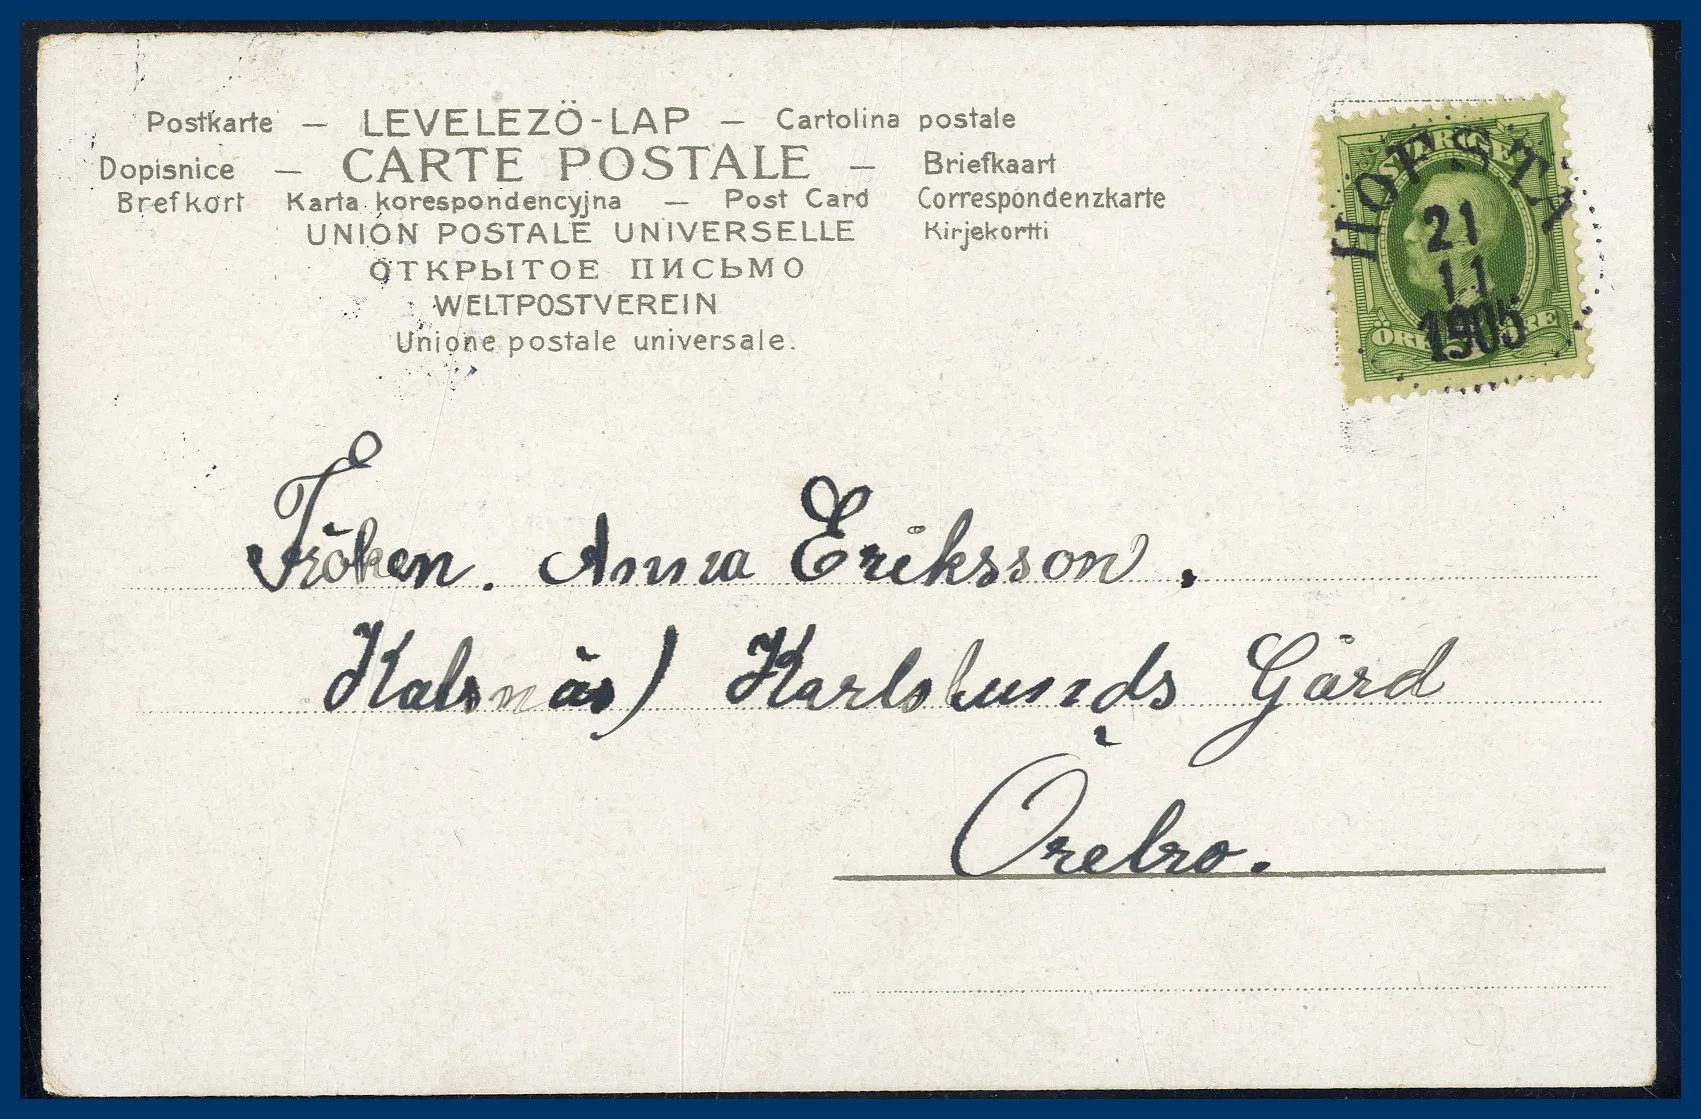 Postkarte — LEVELEZÖ-LAP — Cartolina postale
Dopisnice — CARTE POSTALE — Briefkaart
Brefkort Karta korespondencyjna — Post Card Correspondenzkarte
UNION POSTALE UNIVERSELLE Kirjekortti
ОТКРЫТОЕ ПИСЬМО
WELTPOSTVEREIN
Unione postale universale.
SVERIGE
HOFSTA
21
11
1905
ÖRE 5 ÖRE
Fröken. Anna Eriksson.
Kalsnäs) Karlslunds Gård
Örebro.